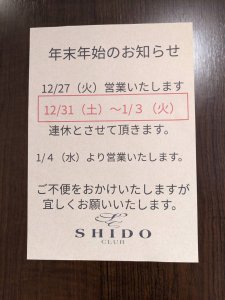 年末年始のお知らせ
12/27（火）営業いたします
12/31（土）～1/3（火）
連休とさせて頂きます。
1/4（水）より営業いたします。
ご不便をおかけいたしますが
宜しくお願いいたします。
SHIDO
CLUB